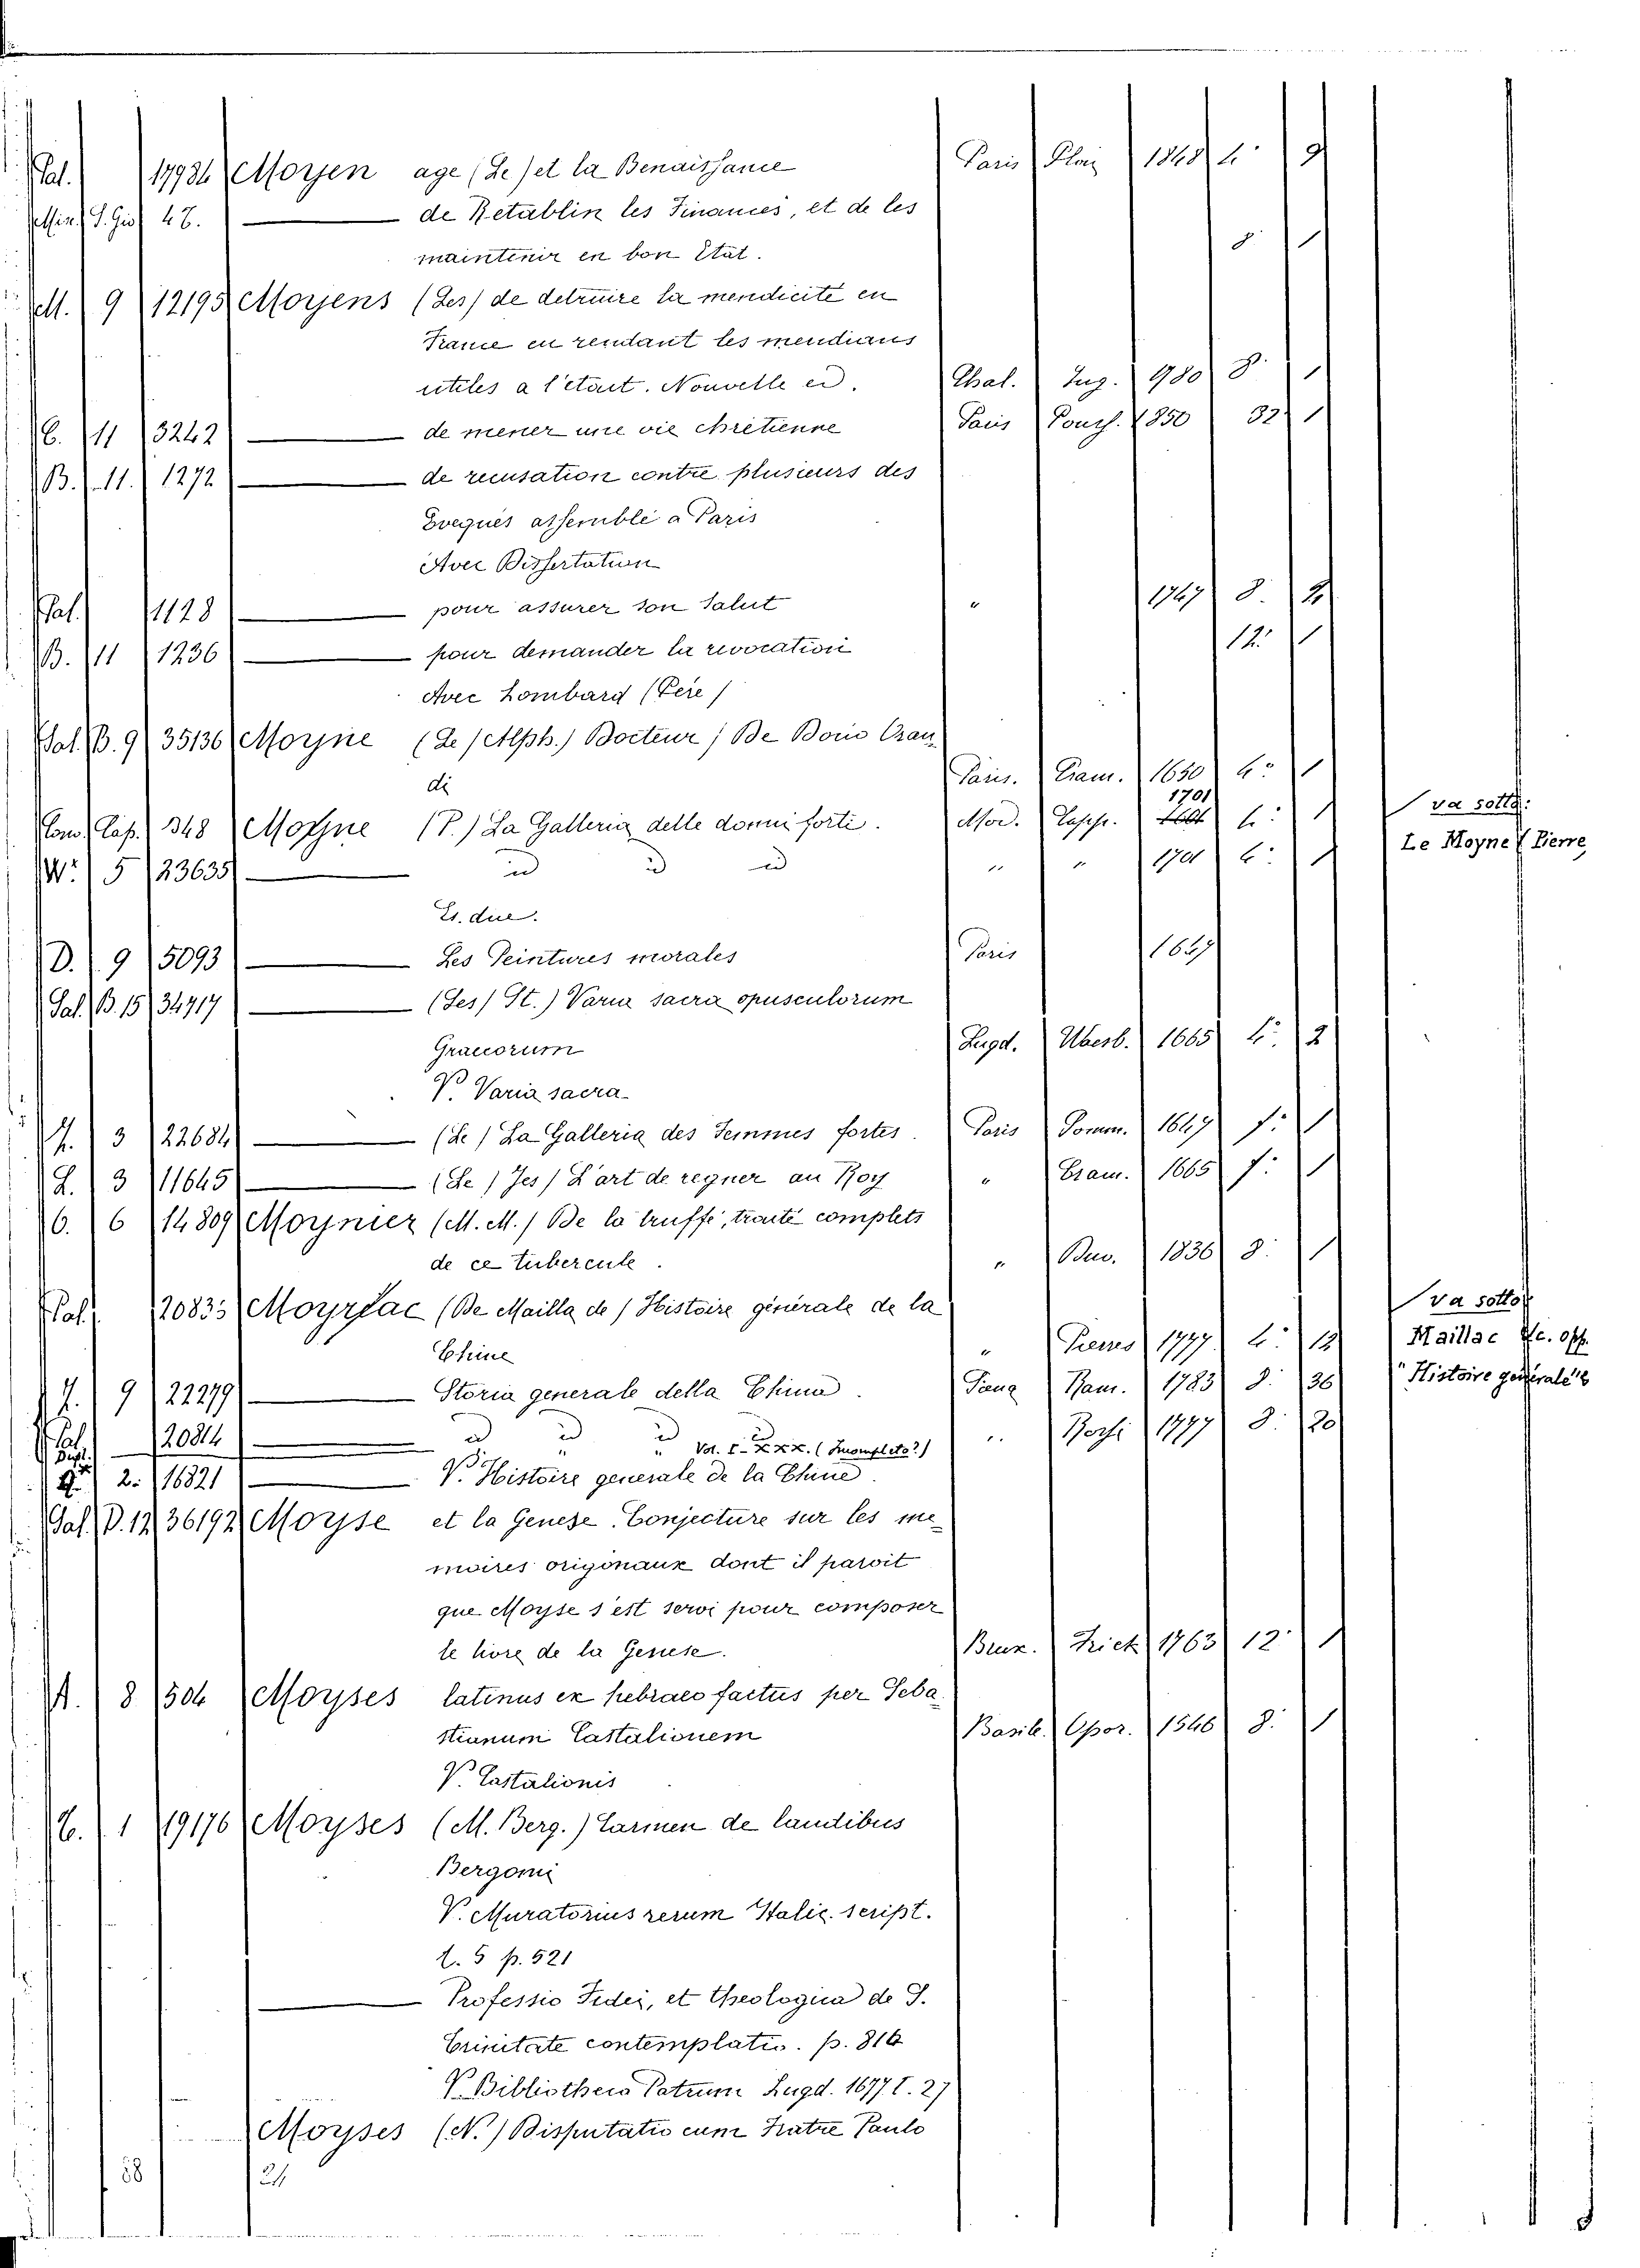 Pal. 17934 Moyen age (Le) et la Renaissance Paris Plon 1848 4. 9
Min. S. Gio. 47. — de Retablir les Finances, et de les
maintenir en bon Etat. 8. 1
M. 9 12195 Moyens (Des) de detruire la mendicité en
France en rendant les mendians
utiles a l'etait. Nouvelle ed. Chal. Jug. 1780 8. 1
C. 11 3242 — de mener une vie chretienne Paris Pouss. 1850 32 1
B. 11. 1272 — de recusation contre plusieurs des
Eveques assemblé a Paris
Avec Dissertation
Pal. 1128 — pour assurer son Salut " 1747 8. 2
B. 11 1236 — pour demander la revocation 12. 1
Avec Lombard (Pere)
Pal. B. 9 35136 Moyne (Le) Alph.) Docteur) De Dono Oran
di Paris. Cram. 1650 4. 1
Com. Cap. 348 Moyne (P.) La Galleria delle donne forti. Mod. Cassi. 1701 4. 1 va sotto:
W. 5 23635 — id id id " " 1701 4. 1 Le Moyne (Pierre
Es. due.
D. 9 5093 — Les Peintures morales Paris 1647
Pal. B. 15 34717 — (Les) St.) Varia sacra opusculorum
Graecorum Lugd. Uberb. 1665 4. 2
V. Varia sacra
3 22684 — (Le) La Galleria des Femmes fortes. Paris Somm. 1647 f. 1
L. 3 11645 — (Le) Jes) L'art de regner au Roy " Cram. 1665 f. 1
6. 6 14809 Moynier (M. M.) De la truffe, traité complets
de ce tubercule. " Buv. 1836 8. 1
Pal. 20835 Moyrlac (De Mailla de) Histoire générale de la va sotto
Chine " Pierres 1777 4. 12 Maillac &c. opp.
9 22279 — Storia generale della China. Siena Ram. 1783 8. 36 "Histoire générale"
Pal. 20814 — id id id id Vol. I-XXX. (Incompleto?) " Rossi 1777 8. 20
2. 16821 — V. Histoire generale de la Chine.
Pal. D. 12 36192 Moyse et la Genese. Conjecture sur les me
moires originaux dont il paroit
que Moyse s'est servi pour composer
le livre de la Genese. Brux. Frick 1763 12. 1
A. 8 504 Moyses latinus ex hebraeo factus per Seba
stianum Castalionem Basil. Opor. 1546 8. 1
V. Castalionis
C. 1 19176 Moyses (M. Berg.) Carmen de laudibus
Bergomi
V. Muratorius rerum Italic. script.
t. 5 p. 521
— Professio Fidei, et theologica de S.
Trinitate contemplatio. p. 816
V. Bibliotheca Patrum Lugd. 1677. t. 27
Moyses (N.) Disputatio cum Fratre Paulo
28 24